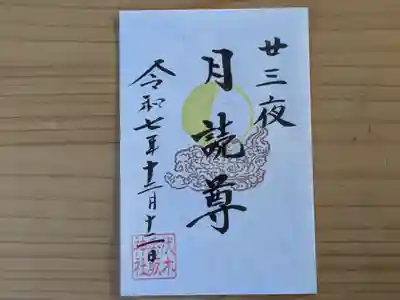 廿三夜
月読尊
令和七年十二月十二日